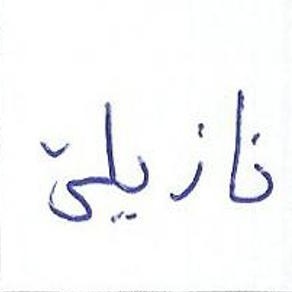 نازیلێ